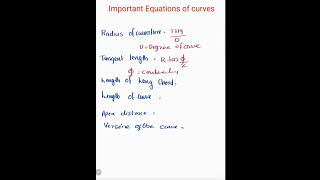 Important Equations of curves
Radius of curvature = 1719
D
D = Degree of curve
Tangent length = R tan ϕ
2
ϕ =
Length of Long Chord =
Length of curve =
Apex distance =
Versine of the curve =